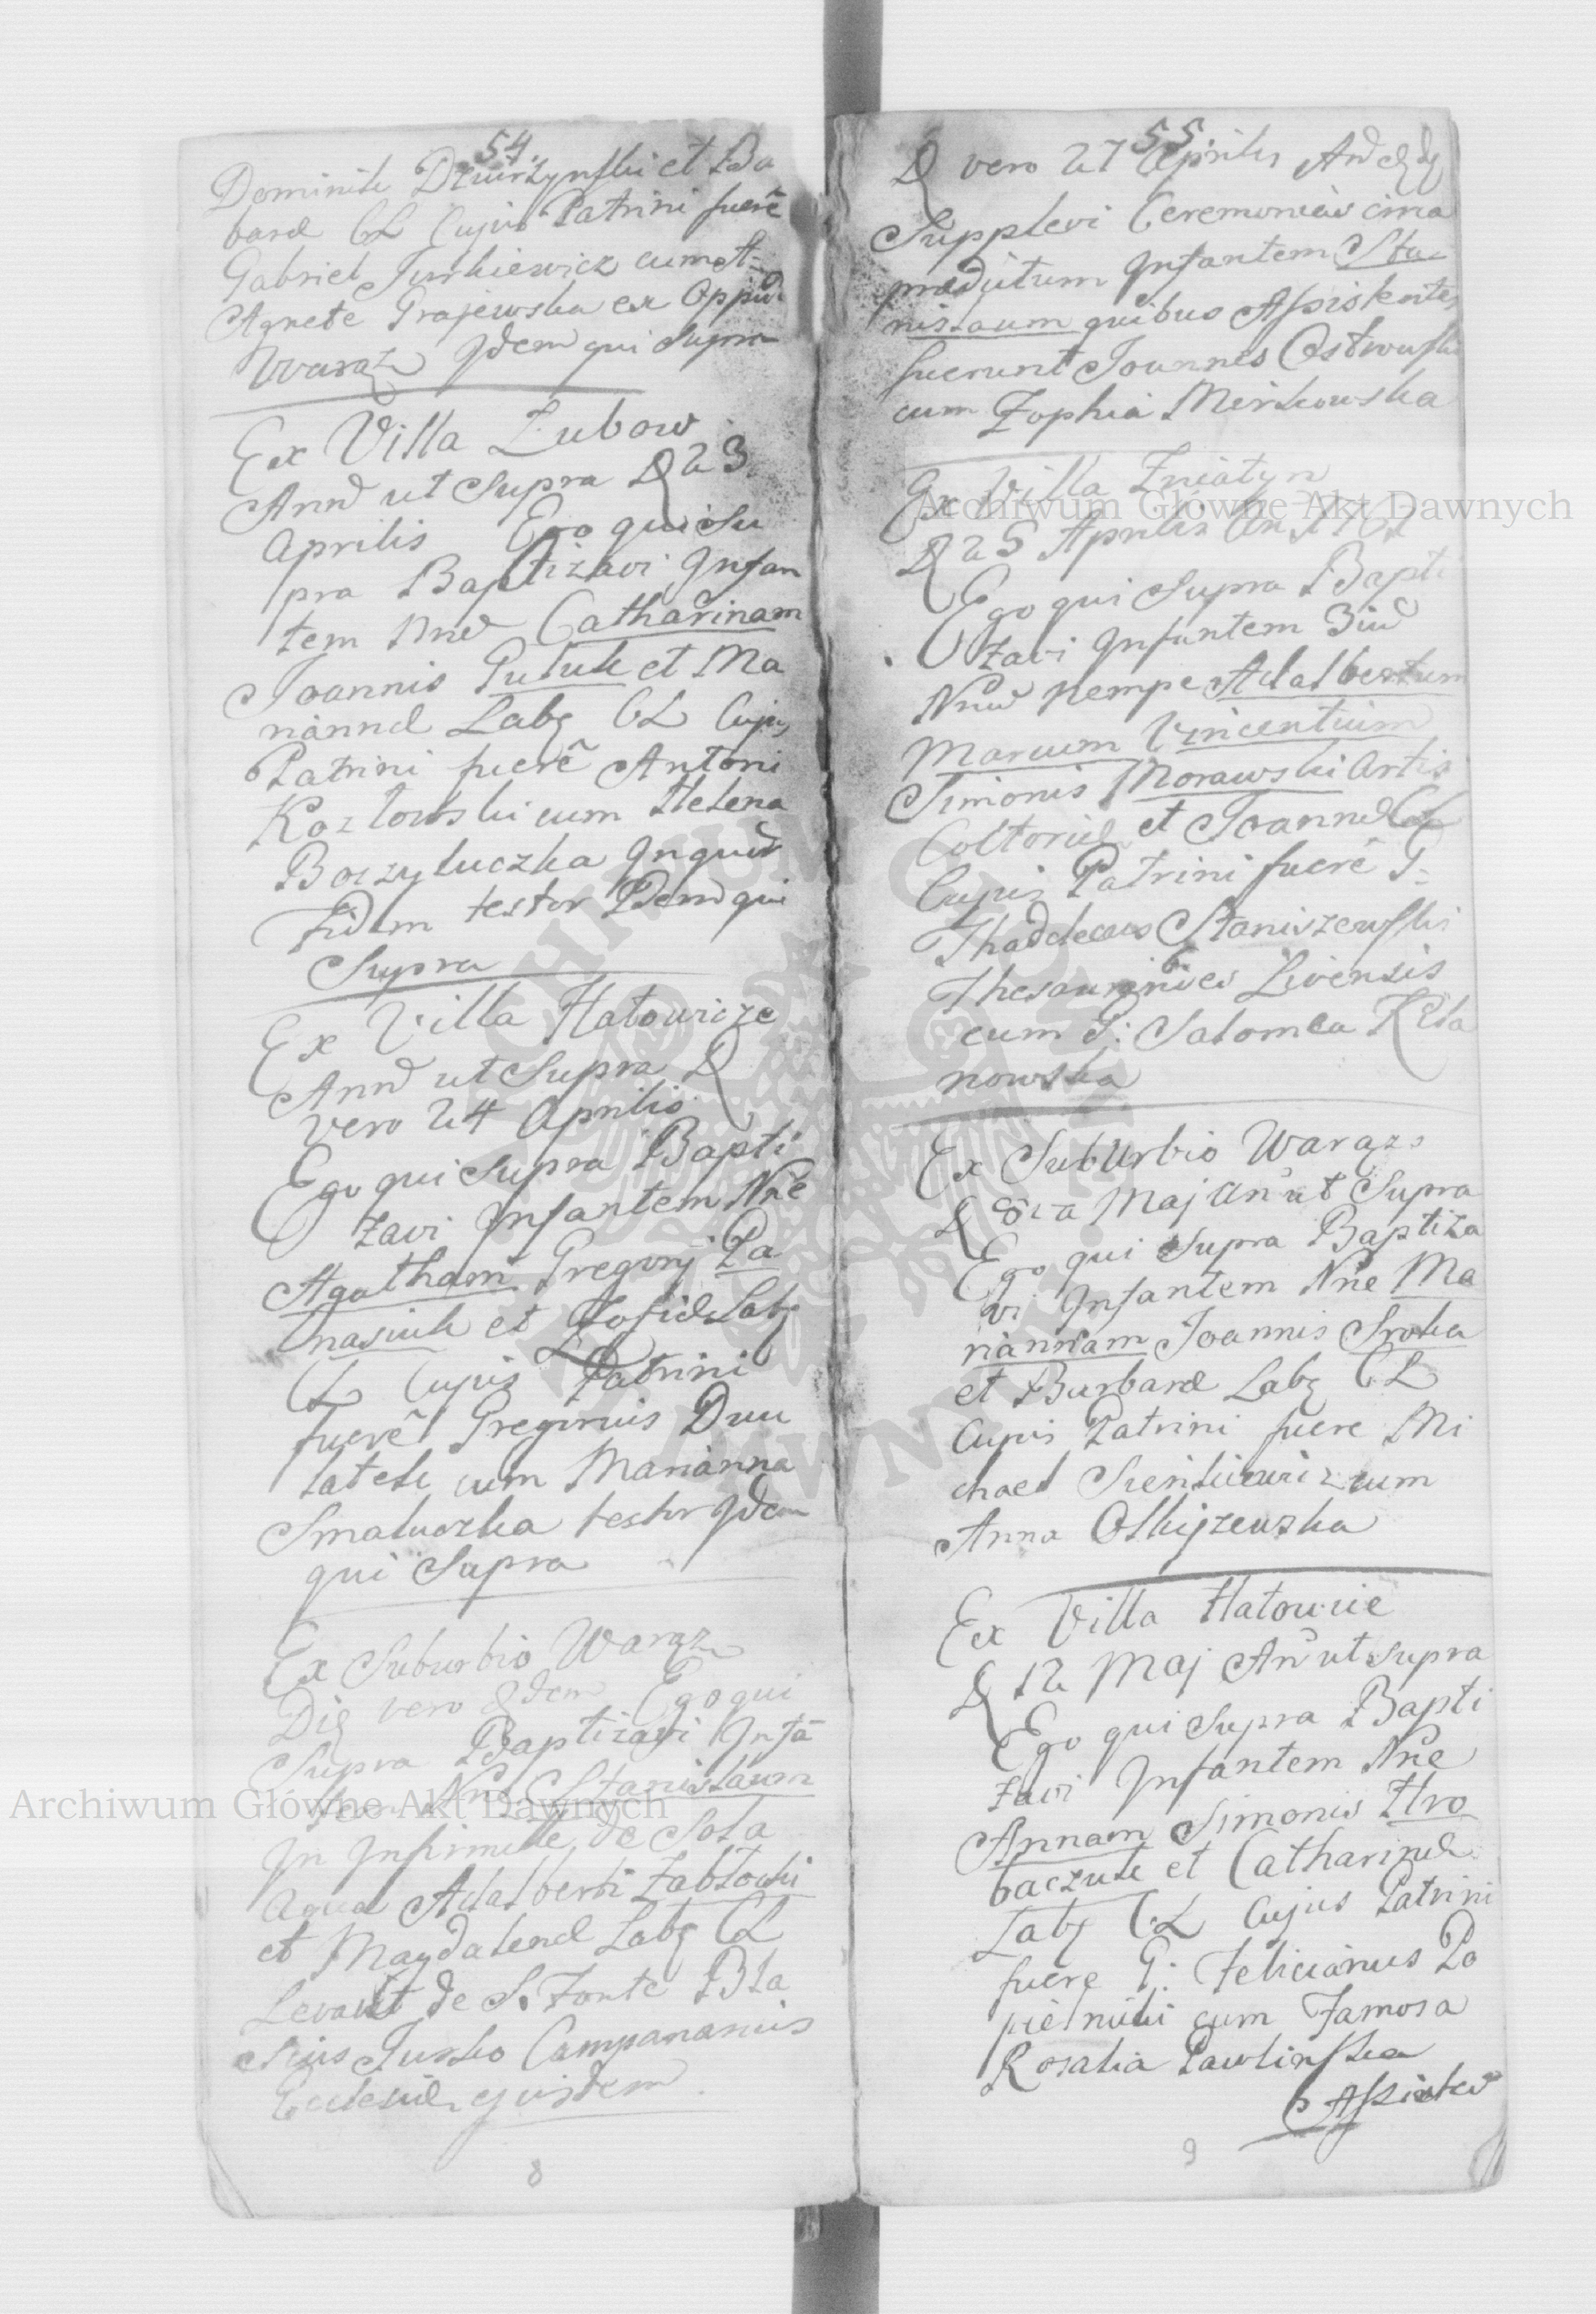 54.
Dominik Dziurzynski et Ba
barae CL Cujus Patrini fuerē
Gabriel Turkiewicz cum
Agnete Grajewska ex Oppid
Waraz Idem qui Supra
Ex Villa Lubow
Anno ut Supra D 23
Aprilis Ego qui Su
pra Baptizavi Infan
tem Nne Catharinam
Joannis Hutuk et Ma
riannae Labz CL Cujus
Patrini fuerē Antoni
Kozlowski cum Helena
Boczyluczka
Fidem testor Idem qui
Supra
Ex Villa Hatowicze
Anno ut Supra D
vero 24 Aprilis
Ego qui Supra Bapti
zavi Infantem Nne
Agatham Gregorij Pa
nasiuk et Zofiae Labz
CL Cujus Patrini
fuerē Gregorius Duu
latek cum Marianna
Smaluczka testor Idem
qui Supra
Ex Suburbio Waraz
Die vero 8dem Ego qui
Supra Baptizavi Infā
tem Nne Stanislaum
In Infirmitte de Sola
aqua Adalberti Zablocki
et Magdalenae Labz CL
Levavit de S. Fonte Bla
sius Jusko Campanarius
Ecclesiae ejusdem
8
55.
D vero 27 Aprilis
Supplevi Ceremonias circa
praedictum Infantem Sta
nislaum quibus Assistentes
fuerunt Joannes Ostrowski
cum Zophia Mirkowska
Ex Villa Zniatyn
D 25 Aprilis An 1761
Ego qui Supra Bapti
zavi Infantem
Nne nempe Adalbertum
Marcum Vincentium
Simonis Morawski Artis
Coltoriae et Joannae CL
Cujus Patrini fuerē G:
Thaddeus Staniszewski
Livensis
cum G: Salomea
nowska
Ex Suburbio Waraz
D 8va Maj An ut Supra
Ego qui Supra Baptiza
vi Infantem Nne Ma
riannam Joannis Sroka
et Barbarae Labz CL
Cujus Patrini fuere Mi
chael Sienkiewicz cum
Anna Olkijzewska
Ex Villa Hatowie
D 12 Maj An ut Supra
Ego qui Supra Bapti
zavi Infantem Nne
Annam Simonis Hro
baczuk et Catharinae
Labz CL Cujus Patrini
fuere G: Felicianus Po
pielnicki cum Famosa
Rosalia Pawlinska
Assistes
9
Archiwum Główne Akt Dawnych
Archiwum Główne Akt Dawnych